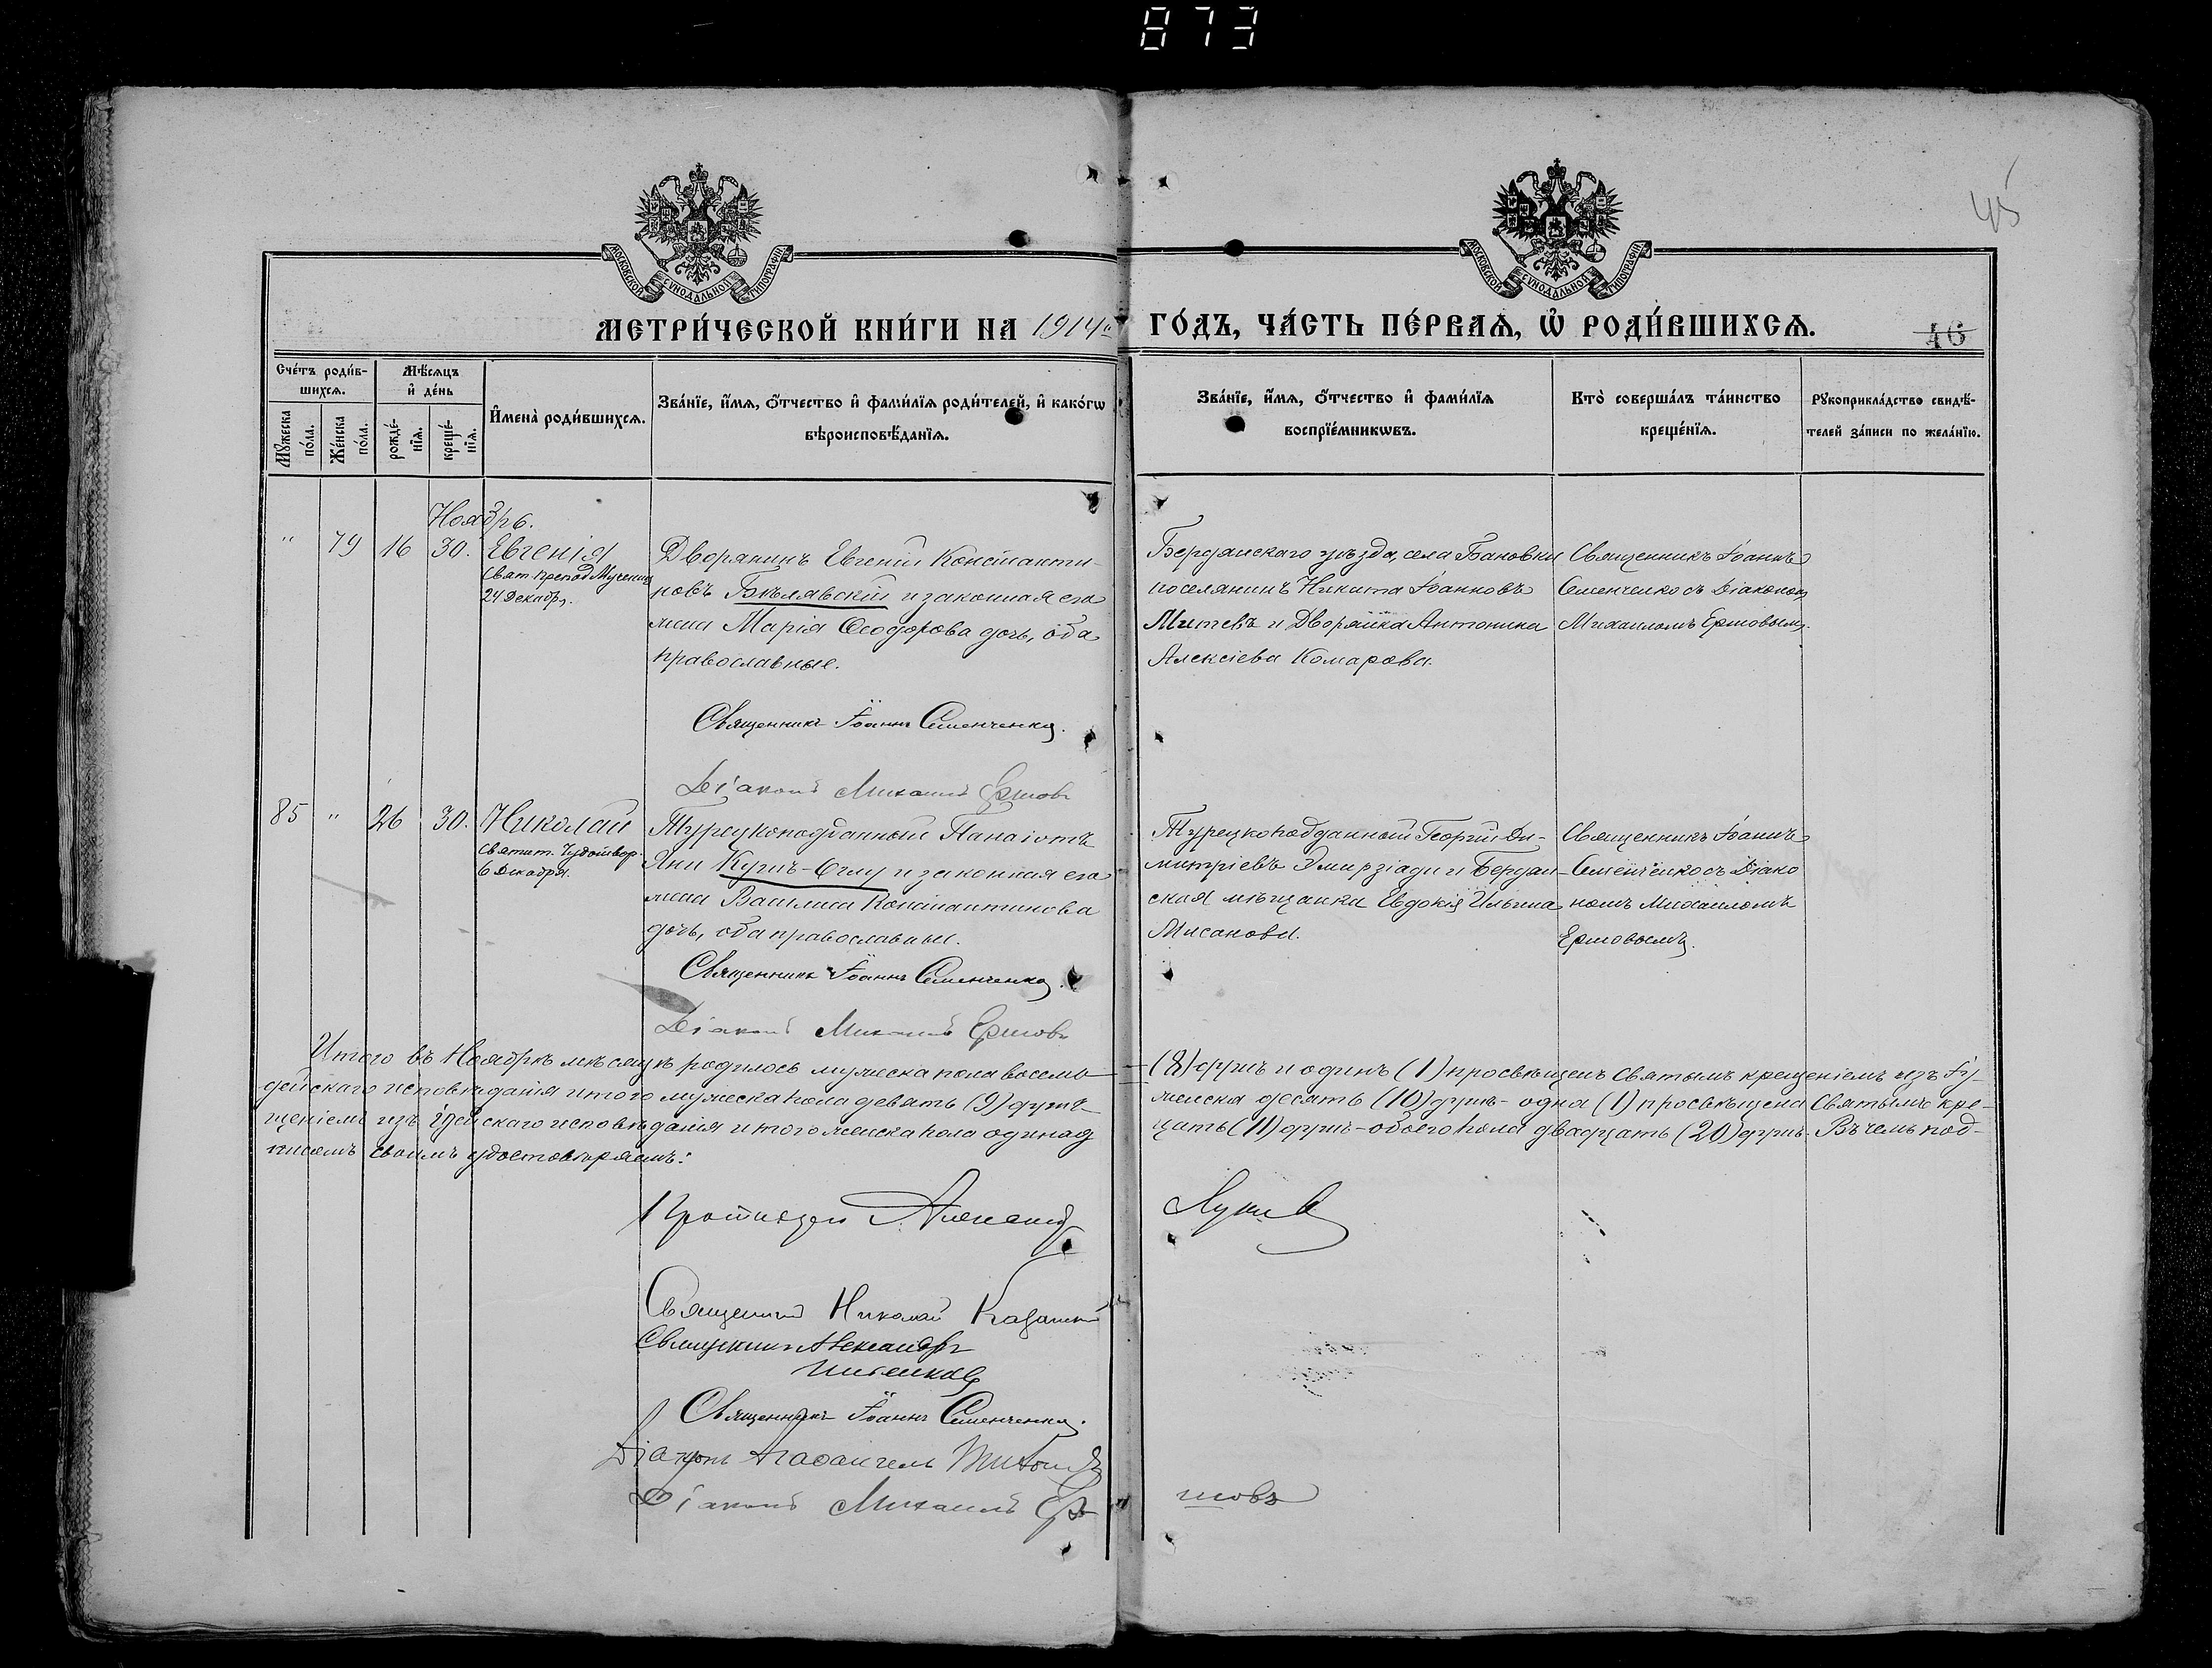 873
45
МОСКОВСКОЙ СѴНОДАЛЬНОЙ ТИПОГРАФІИ
МОСКОВСКОЙ СѴНОДАЛЬНОЙ ТИПОГРАФІИ
МЕТРИ́ЧЕСКОЙ КНИ́ГИ НА 1914 ГО́ДЪ, ЧА́СТЬ ПЕ́РВАѦ, Ѡ РОДИ́ВШИХСѦ.
46
Сче́тъ роди́в-
шихсѧ.
Мꙋжеска по́ла.
Же́нска по́ла.
Мѣ́сѧцъ
и҆ де́нь
рожде́-
нїѧ.
креще́-
нїѧ.
И҆мена̀ роди́вшихсѧ.
Зва́нїе, и҆́мѧ, ѻ҆́тчество и҆ фами́лїѧ роди́телей, и҆ како́гѡ
вѣроисповѣ́данїѧ.
Зва́нїе, и҆́мѧ, ѻ҆́тчество и҆ фами́лїѧ
воспрїе́мникѡвъ.
Кто̀ соверша́лъ та́инство
креще́нїѧ.
Рꙋкоприкла́дство свидѣ́-
телей за́писи по жела́нїю.
Ноябрь.
" 79 16 30. Евгенія
Свят. препод Мучениц
24 Декабр.
Дворянинъ Евгеній Константи-
новъ и законная его
жена Марія Ѳеодорова дочь, оба
православные.
Священникъ Іоаннъ Семенченко.
Діаконъ Михаилъ Ершовъ
Бердянскаго уѣзда, села Бановки
поселянинъ Никита Іоанновъ
Митевъ и Дворянка Антонина
Алексіева Комарова.
Священникъ Іоаннъ
Семенченко съ Діакономъ
Михаиломъ Ершовымъ.
85 " 26 30. Николай
Святит. Чудотвор.
6 Декабря.
Турецкоподданный Панаіотъ
Яни Кушъ-Оглу и законная его
жена Василиса Константинова
дочь, оба православные.
Священникъ Іоаннъ Семенченко.
Діаконъ Михаилъ Ершовъ
Турецкоподданный Георгій Ди-
митріевъ Эмирзіади и Бердян-
ская мѣщанка Евдокія Ильина
Мисанова.
Священникъ Іоаннъ
Семенченко съ Діако
номъ Михаиломъ
Ершовымъ.
Итого въ Ноябрѣ мѣсяцѣ родилось мужеска пола восемь (8) душъ и одинъ (1) просвѣщенъ Святымъ крещеніемъ изъ Іу-
дейскаго исповѣданія итого мужеска пола девять (9) душъ- женска десять (10) душъ- одна (1) просвѣщена Святымъ кре-
щеніемъ изъ Іудейскаго исповѣданія итого женска пола одинад цать (11) душъ- обоего пола двадцать (20) душъ. Въ чемъ под-
писомъ своимъ удостовѣряемъ:
Протоіерей Александръ
Священникъ Николай Казанскій
Священникъ Александръ
Священникъ Іоаннъ Семенченко.
Діаконъ Агаѳангелъ
Діаконъ Михаилъ Ер шовъ